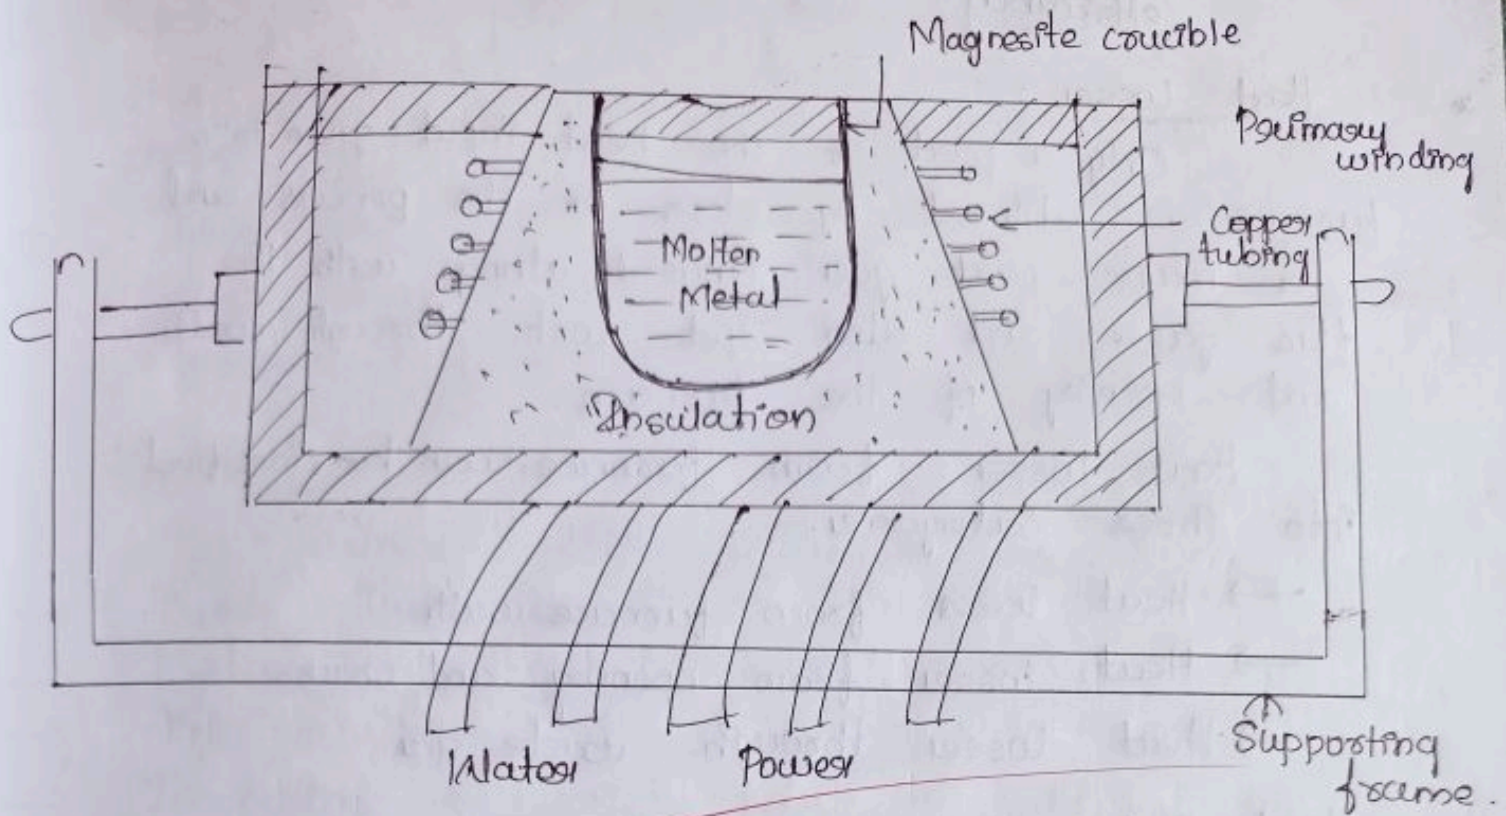 Magnesite crucible
Primary
winding
Copper
tubing
Molten
Metal
Insulation
Water
Power
Supporting
frame.